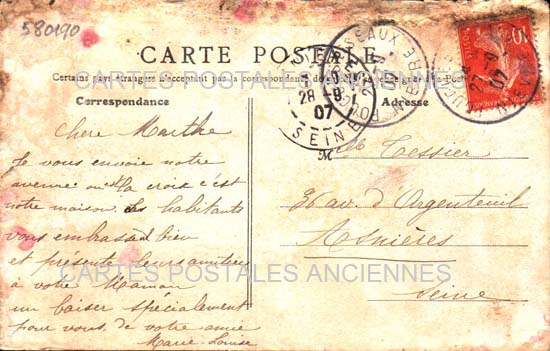 580190
CARTE POSTALE
Certains pays étrangers n'acceptent pas la correspondance
Correspondance
Adresse
Chère Marthe
Je vous envoie notre
avenue la croix c'est
notre maison les habitants
vous embrassent bien
et présente leurs amitiés
à votre Maman
un baiser spécialement
pour vous de votre amie
Marie Louise
Mlle Tessier
36 av. d'Argenteuil
Asnières
Seine
28 -8
07
SEINE
10
CARTES POSTALES ANCIENNES